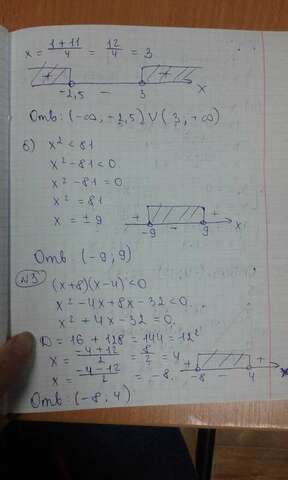 x = (1+11)/4 = 12/4 = 3
+ +
-2,5 - 3 x
Отв: (-∞, -2,5) ∨ (3, +∞)
б) x² < 81
x² - 81 < 0
x² - 81 = 0
x² = 81
x = ±9
+ -9 - 9 + x
Отв (-9, 9)
№3 (x+8)(x-4) < 0
x² - 4x + 8x - 32 < 0
x² + 4x - 32 = 0
D = 16 + 128 = 144 = 12²
x = (-4+12)/2 = 8/2 = 4
x = (-4-12)/2 = -8.
+ -8 - 4 + x
Отв: (-8; 4)